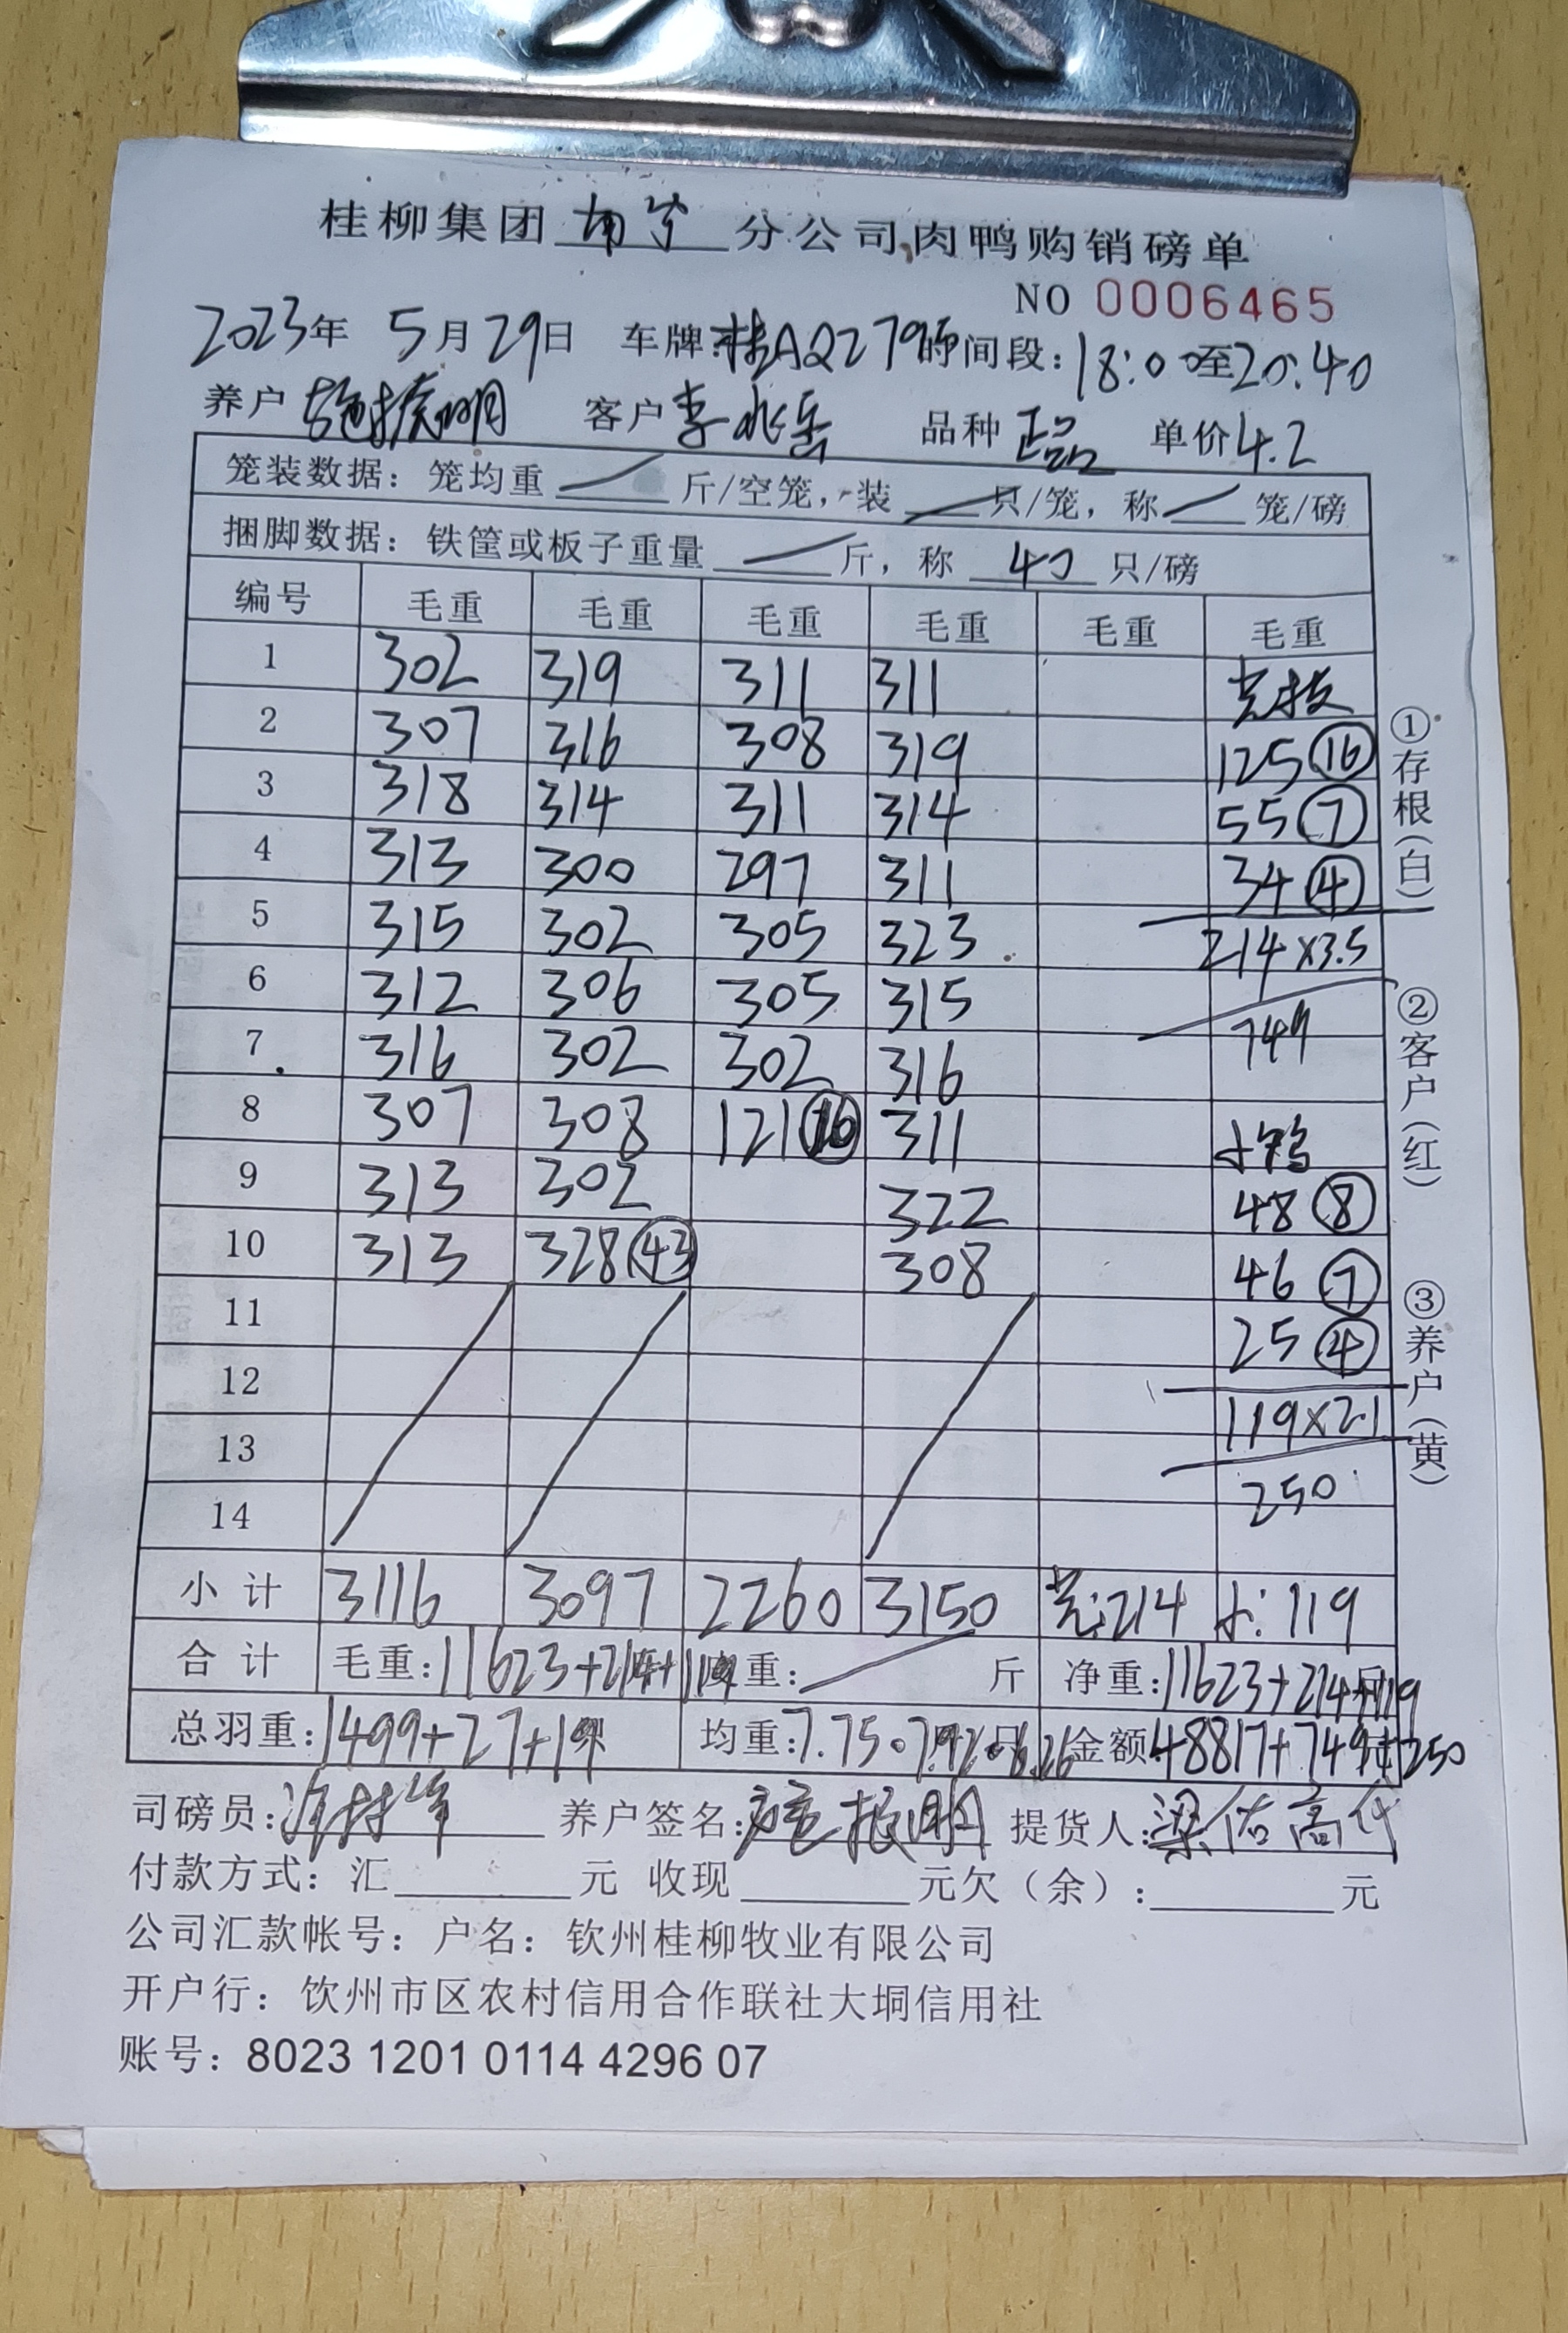 桂柳集团 南宁 分公司肉鸭购销磅单
NO 0006465
2023年 5月29日 车牌:桂AQ2795 时间段:18:00至20:40
养户 施振明 客户 李兆岳 品种 正品 单价4.2
笼装数据: 笼均重 斤/空笼, 装 只/笼, 称 笼/磅
捆脚数据: 铁筐或板子重量 斤, 称 40 只/磅
编号 毛重 毛重 毛重 毛重 毛重 毛重
1 302 319 311 311 光枝
2 307 316 308 319 125 16
3 318 314 311 314 55 7
4 313 300 297 311 34 4
5 315 302 305 323 214×3.5
6 312 306 305 315
7 316 302 302 316 749
8 307 308 121 16 311 小鸭
9 313 302 322 48 8
10 313 328 43 308 46 7
11 25 4
12 119×2.1
13
14 250
小计 3116 3097 2260 3150 光:214 小:119
合计 毛重:11623+214+119 重: 斤 净重:11623+214+119
总羽重:1499+27+19 均重:7.75 7.92 6.26 金额48817+749+250
司磅员: 养户签名:施振明 提货人:梁佑高代
付款方式: 汇 元 收现 元欠(余): 元
公司汇款帐号: 户名: 钦州桂柳牧业有限公司
开户行: 饮州市区农村信用合作联社大垌信用社
账号: 8023 1201 0114 4296 07
①存根(白)
②客户(红)
③养户(黄)